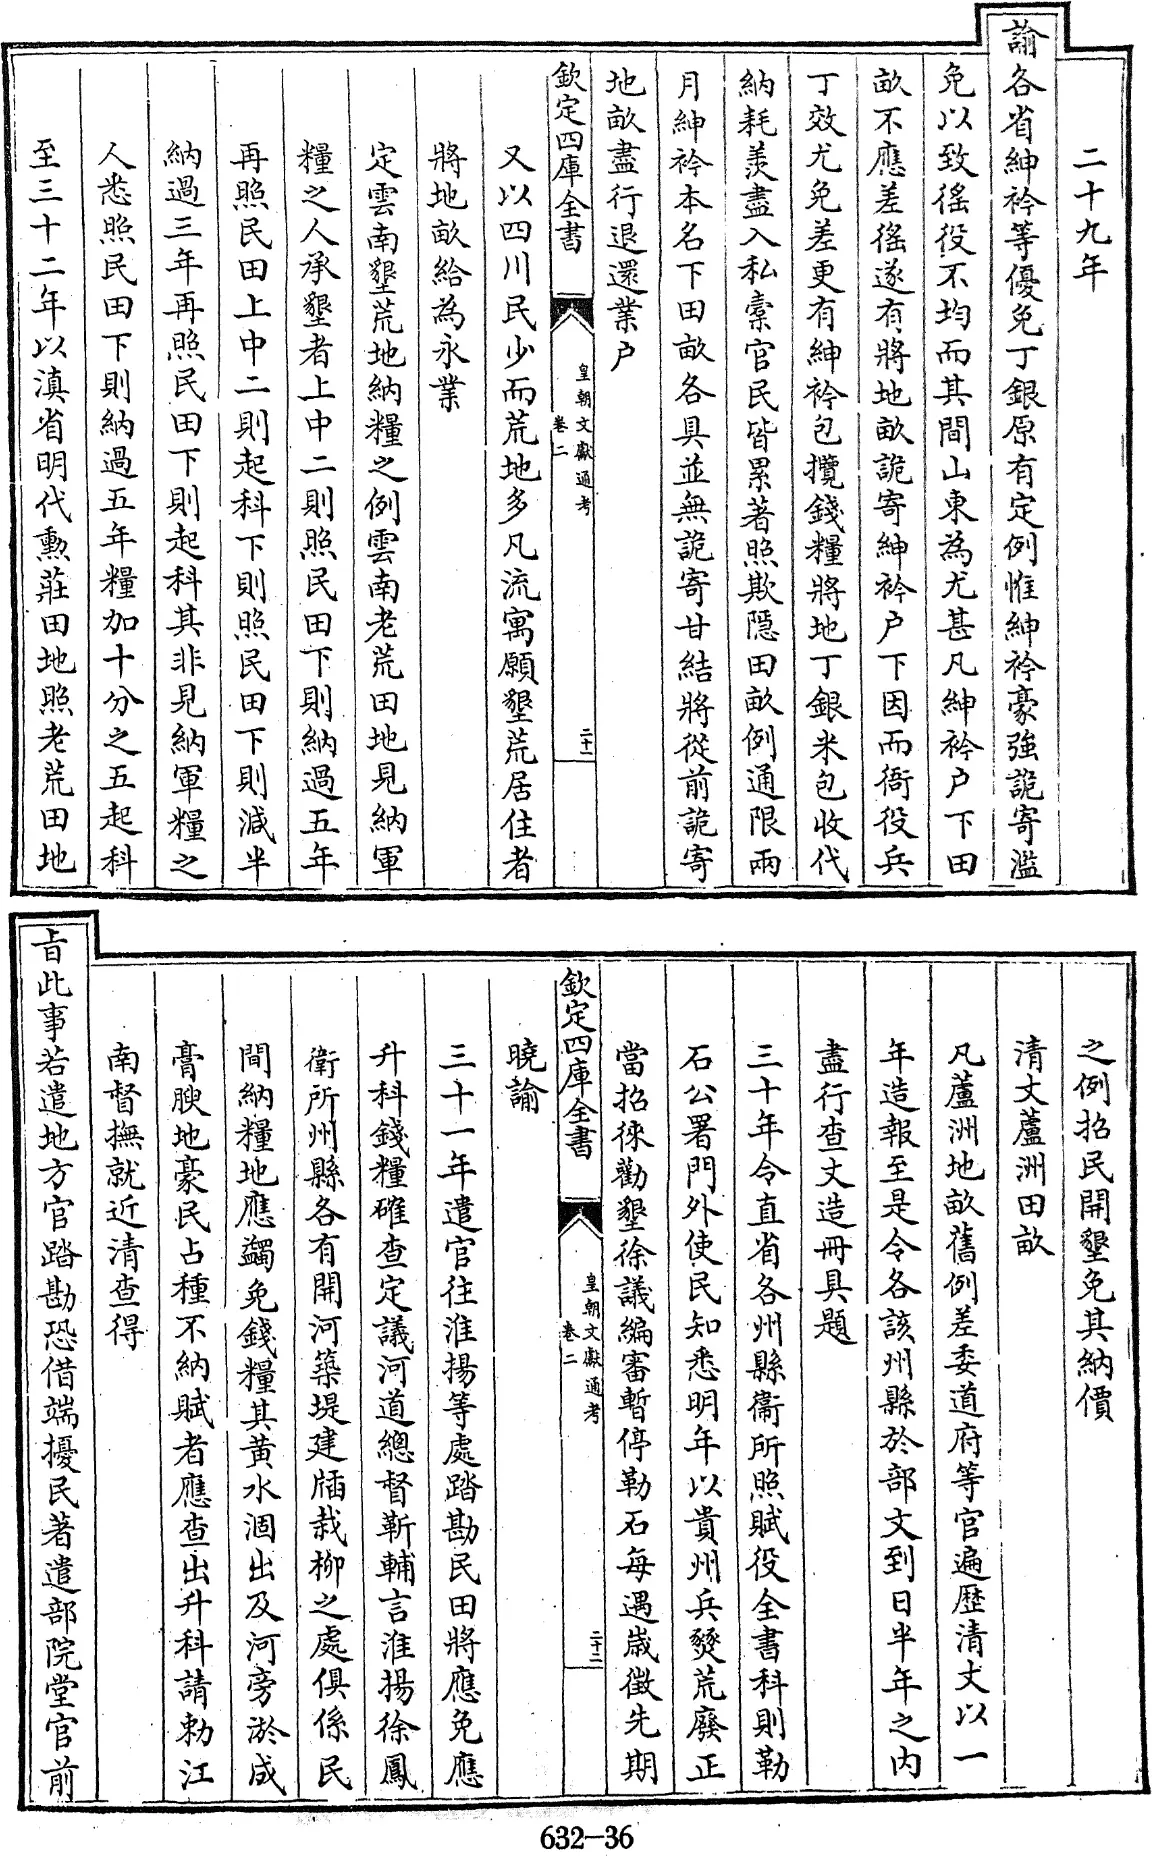 二十九年
諭各省紳衿等優免丁銀原有定例惟紳衿豪強詭寄濫
免以致徭役不均而其間山東為尤甚凡紳衿户下田
畝不應差徭遂有將地畝詭寄紳衿户下因而衙役兵
丁效尤免差更有紳衿包攬錢糧將地丁銀米包收代
納耗羨盡入私橐官民皆累著照欺隱田畝例通限兩
月紳衿本名下田畝各具並無詭寄甘結將從前詭寄
地畝盡行退還業户
欽定四庫全書
皇朝文獻通考
卷二
二十一
又以四川民少而荒地多凡流寓願墾荒居住者
將地畝給為永業
定雲南墾荒地納糧之例雲南老荒田地見納軍
糧之人承墾者上中二則照民田下則納過五年
再照民田上中二則起科下則照民田下則減半
納過三年再照民田下則起科其非見納軍糧之
人悉照民田下則納過五年糧加十分之五起科
至三十二年以滇省明代勲莊田地照老荒田地
之例招民開墾免其納價
清丈蘆洲田畝
凡蘆洲地畝舊例差委道府等官遍歴清丈以一
年造報至是令各該州縣於部文到日半年之内
盡行查丈造冊具題
三十年令直省各州縣衞所照賦役全書科則勒
石公署門外使民知悉明年以貴州兵燹荒廢正
當招徠勸墾徐議編審暫停勒石每遇歲徵先期
曉諭
欽定四庫全書
皇朝文獻通考
卷二
二十二
三十一年遣官往淮揚等處踏勘民田將應免應
升科錢糧確查定議河道總督靳輔言淮揚徐鳳
衛所州縣各有開河築堤建牐栽柳之處俱係民
間納糧地應蠲免錢糧其黄水涸出及河旁淤成
膏腴地豪民占種不納賦者應查出升科請勅江
南督撫就近清查得
㫖此事若遣地方官踏勘恐借端擾民著遣部院堂官前
632-36